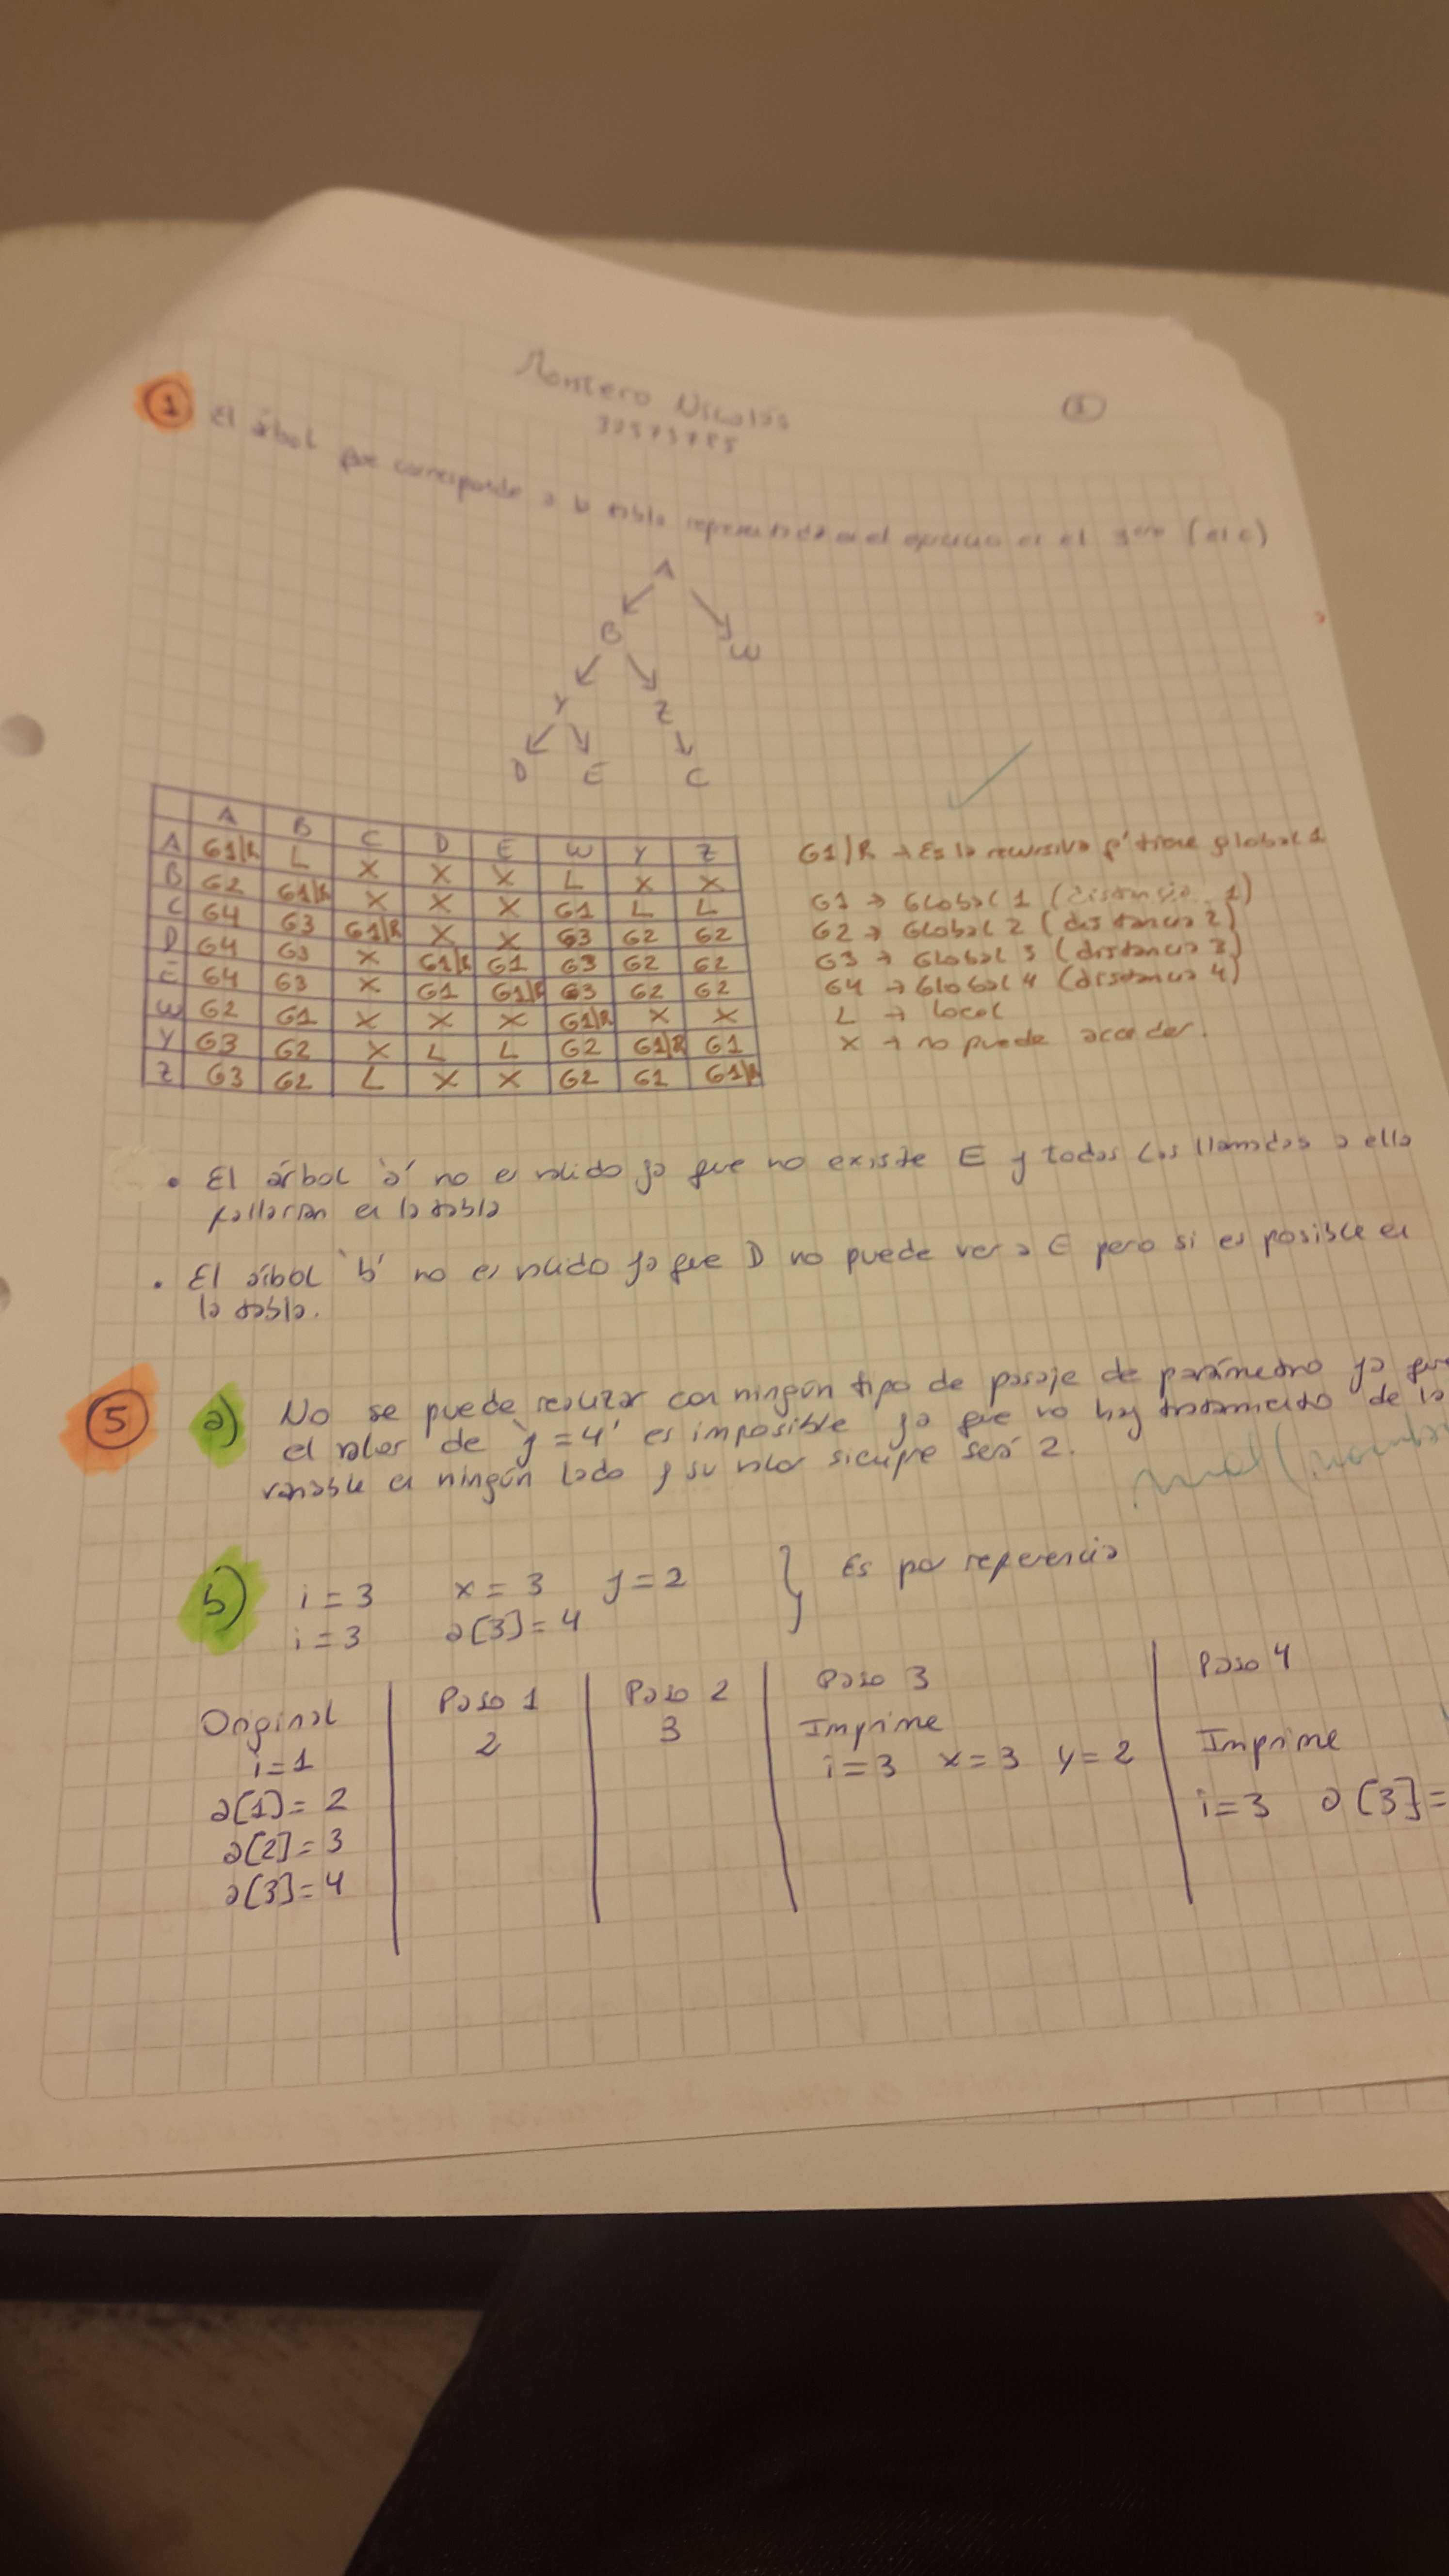 Montero Nicolás
①
① El árbol que corresponde a la tabla representada en el ejercicio es el 3ero (el c)
A
B W
Y Z
D E C
A B C D E W Y Z
A G1|R L X X X L X X
B G2 G1|R X X X G1 L L
C G4 G3 G1|R X X G3 G2 G2
D G4 G3 X G1|R G1 G3 G2 G2
E G4 G3 X G1 G1|R G3 G2 G2
W G2 G1 X X X G1|R X X
Y G3 G2 X L L G2 G1|R G1
Z G3 G2 L X X G2 G1 G1|R
G1|R → Es la recursiva q' tiene global 1
G1 → Global 1 (distancia 1)
G2 → Global 2 (distancia 2)
G3 → Global 3 (distancia 3)
G4 → Global 4 (distancia 4)
L → local
X → no puede acceder.
• El árbol 'a' no es valido ya que no existe E y todas las llamadas a ella
fallarian en la tabla
• El árbol 'b' no es valido ya que D no puede ver a E pero si es posible en
la tabla.
⑤ a) No se puede realizar con ningún tipo de pasaje de parámetro ya que
el valor de 'y=4' es imposible ya que no hay tratamiento de la
variable en ningún lado y su valor siempre será 2.
mal
b) i=3 x=3 y=2 } Es por referencia
i=3 a[3]=4
Original | Paso 1 | Paso 2 | Paso 3 | Paso 4
i=1 | 2 | 3 | Imprime | Imprime
a[1]=2 | i=3 x=3 y=2 | i=3 a[3]=
a[2]=3
a[3]=4